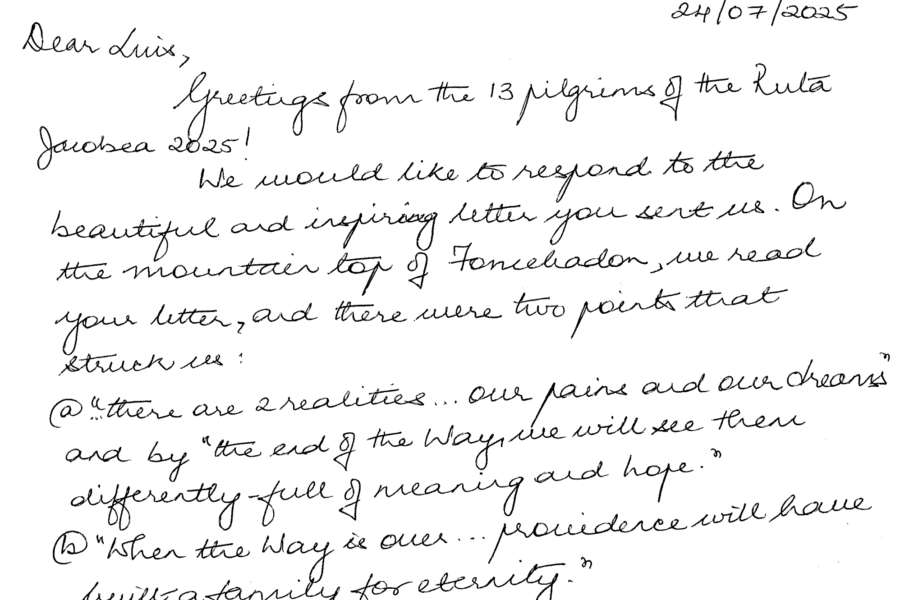 24/07/2025
Dear Luis,
Greetings from the 13 pilgrims of the Ruta
Jacobea 2025!
We would like to respond to the
beautiful and inspiring letter you sent us. On
the mountain top of Foncebadon, we read
your letter, and there were two points that
struck us:
ⓐ "...there are 2 realities... our pains and our dreams"
and by "the end of the Way, we will see them
differently - full of meaning and hope."
ⓑ "When the Way is over... providence will have
built a family for eternity."